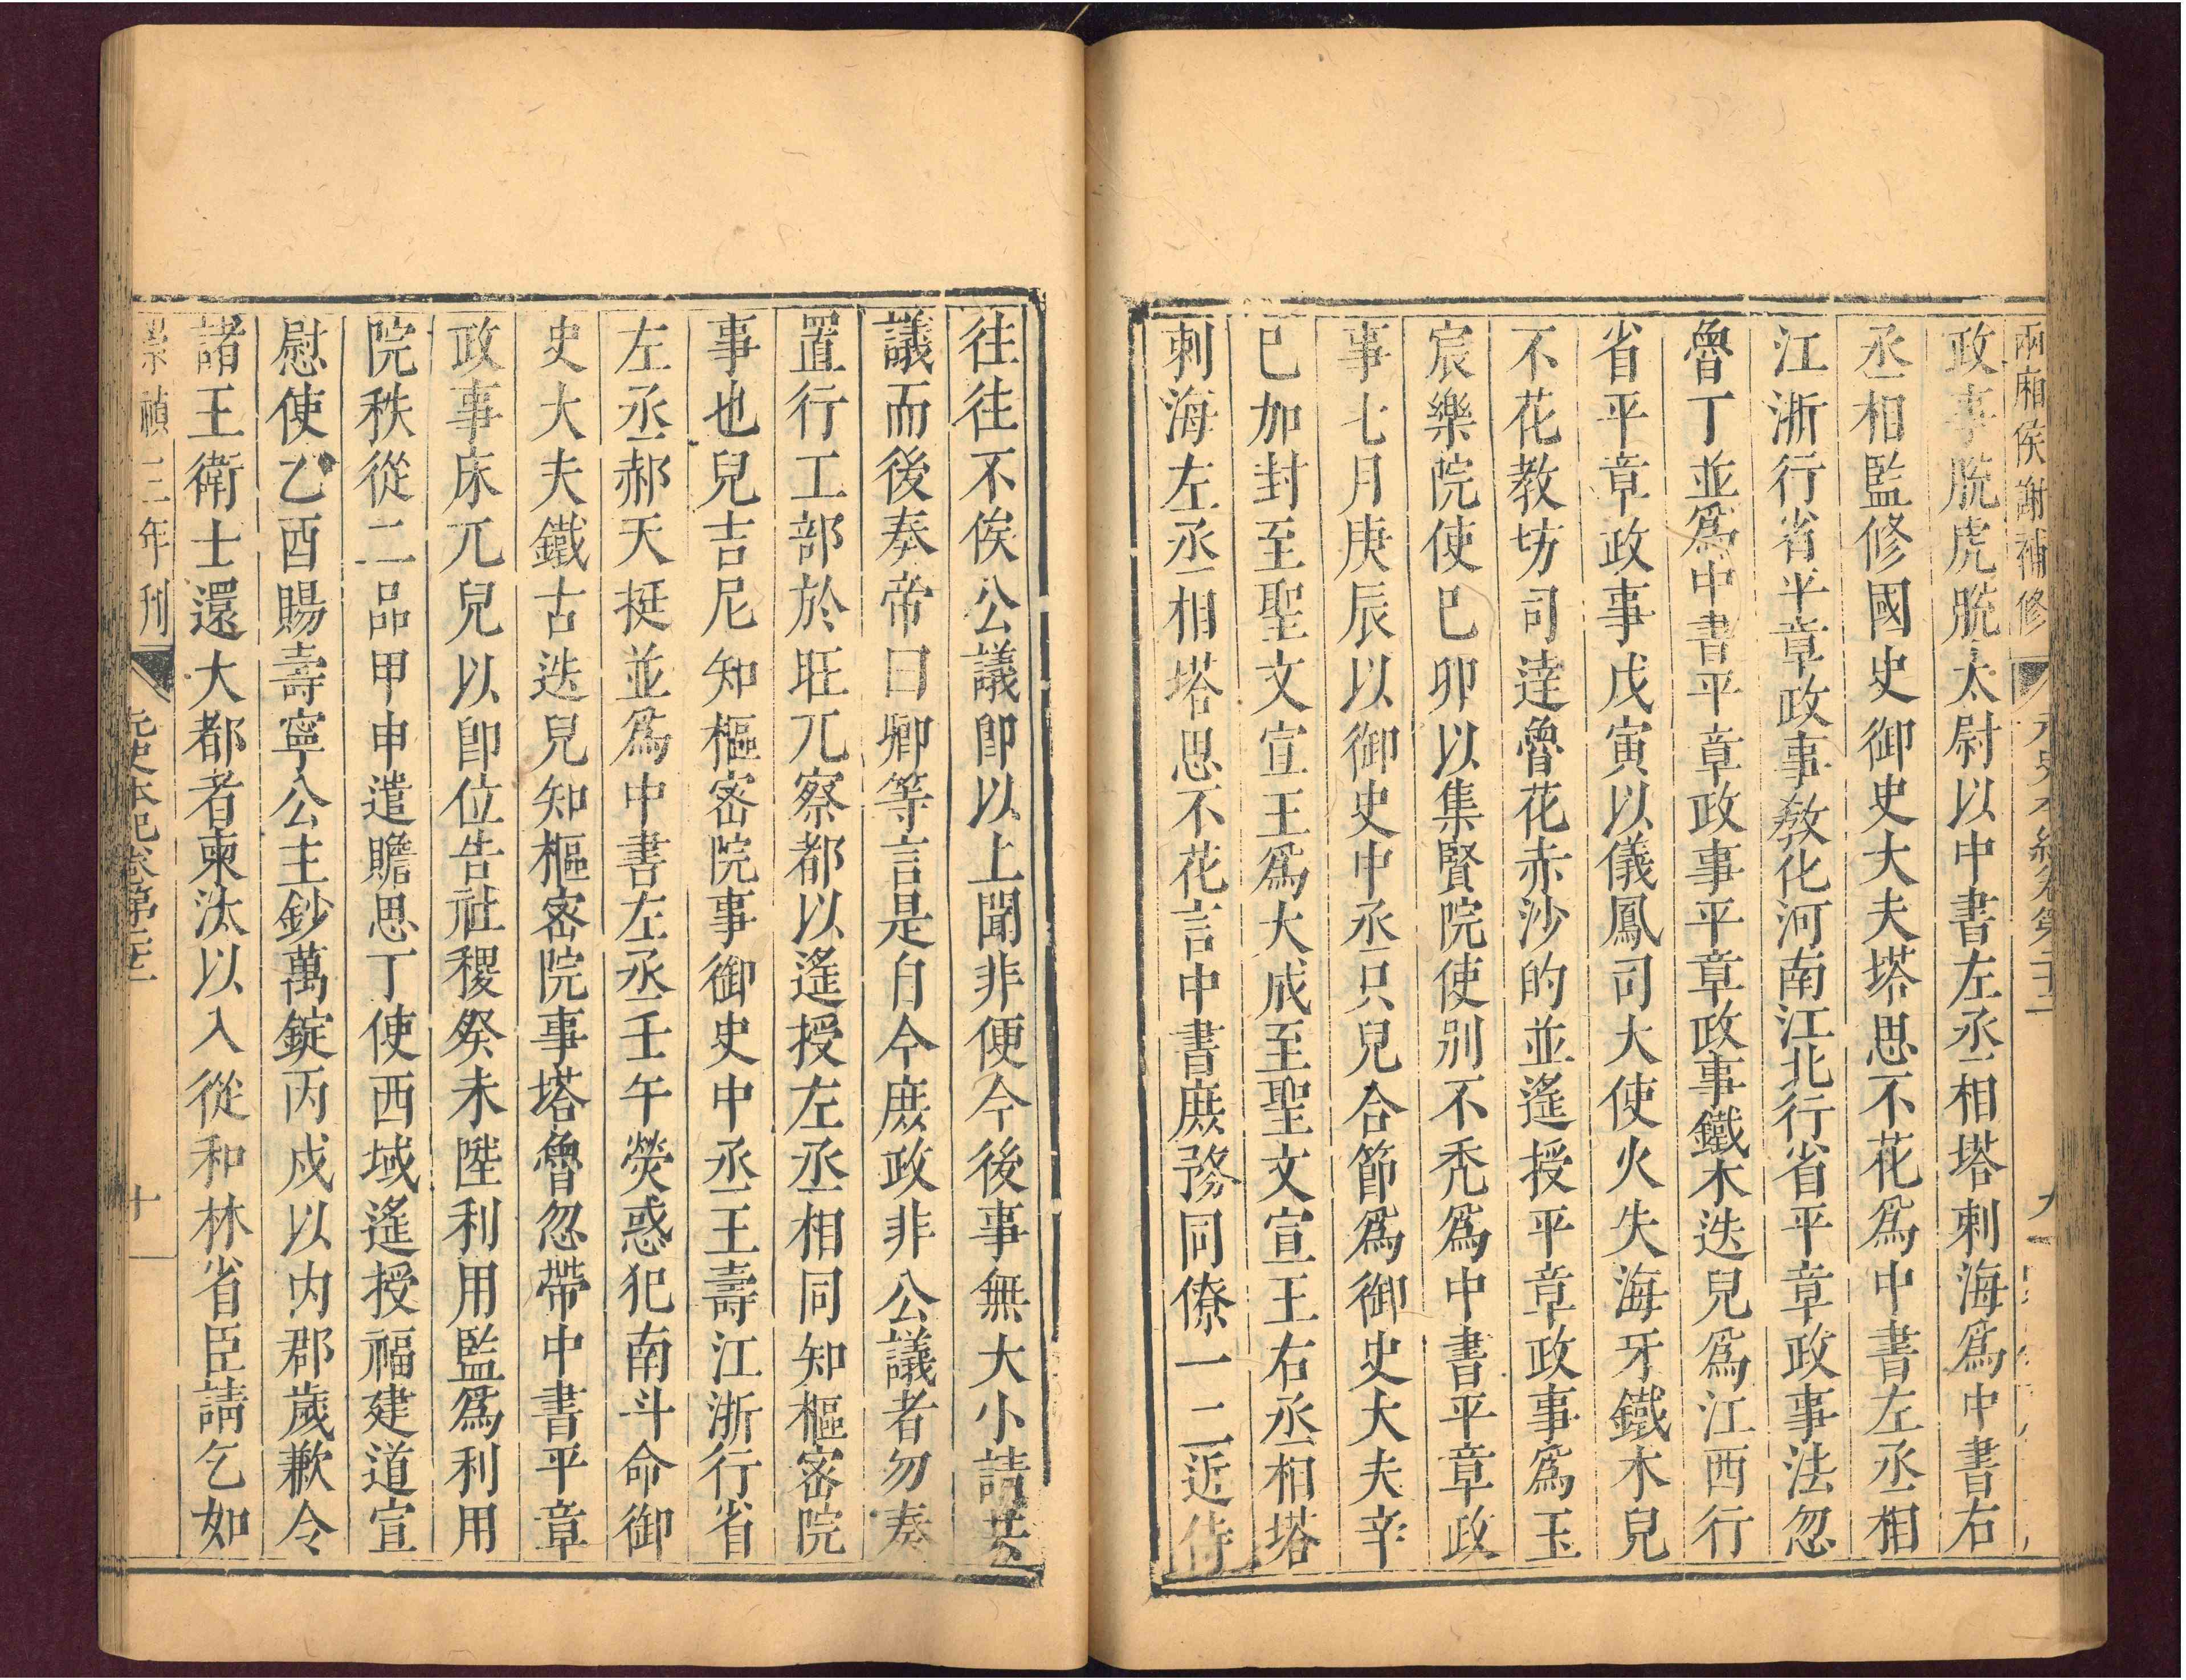 兩廂侯謝補修 元史本紀卷第二十二 九
政事脫虎脫太尉以中書左丞相塔剌海爲中書右
丞相監修國史御史大夫塔思不花爲中書左丞相
江浙行省平章政事教化河南江北行省平章政事法忽
魯丁並爲中書平章政事平章政事鐵木迭兒爲江西行
省平章政事戊寅以儀鳳司大使火失海牙鐵木兒
不花教坊司達魯花赤沙的並遙授平章政事爲玉
宸樂院使已卯以集賢院使别不秃爲中書平章政
事七月庚辰以御史中丞只兒合節爲御史大夫辛
巳加封至聖文宣王爲大成至聖文宣王右丞相塔
剌海左丞相塔思不花言中書庶務同僚一二近侍
往往不俟公議卽以上聞非便今後事無大小請共
議而後奏帝曰卿等言是自今庶政非公議者勿奏
置行工部於旺兀察都以遙授左丞相同知樞密院
事也兒吉尼知樞密院事御史中丞王壽江浙行省
左丞郝天挺並爲中書左丞壬午熒惑犯南斗命御
史大夫鐵古迭兒知樞密院事塔魯忽帶中書平章
政事床兀兒以卽位告社稷癸未陞利用監爲利用
院秩從二品甲申遣贍思丁使西域遙授福建道宣
慰使乙酉賜壽寧公主鈔萬錠丙戌以內郡歲歉令
諸王衛士還大都者柬汰以入從和林省臣請乞如
崇禎三年刊 元史本紀卷第二十二 十